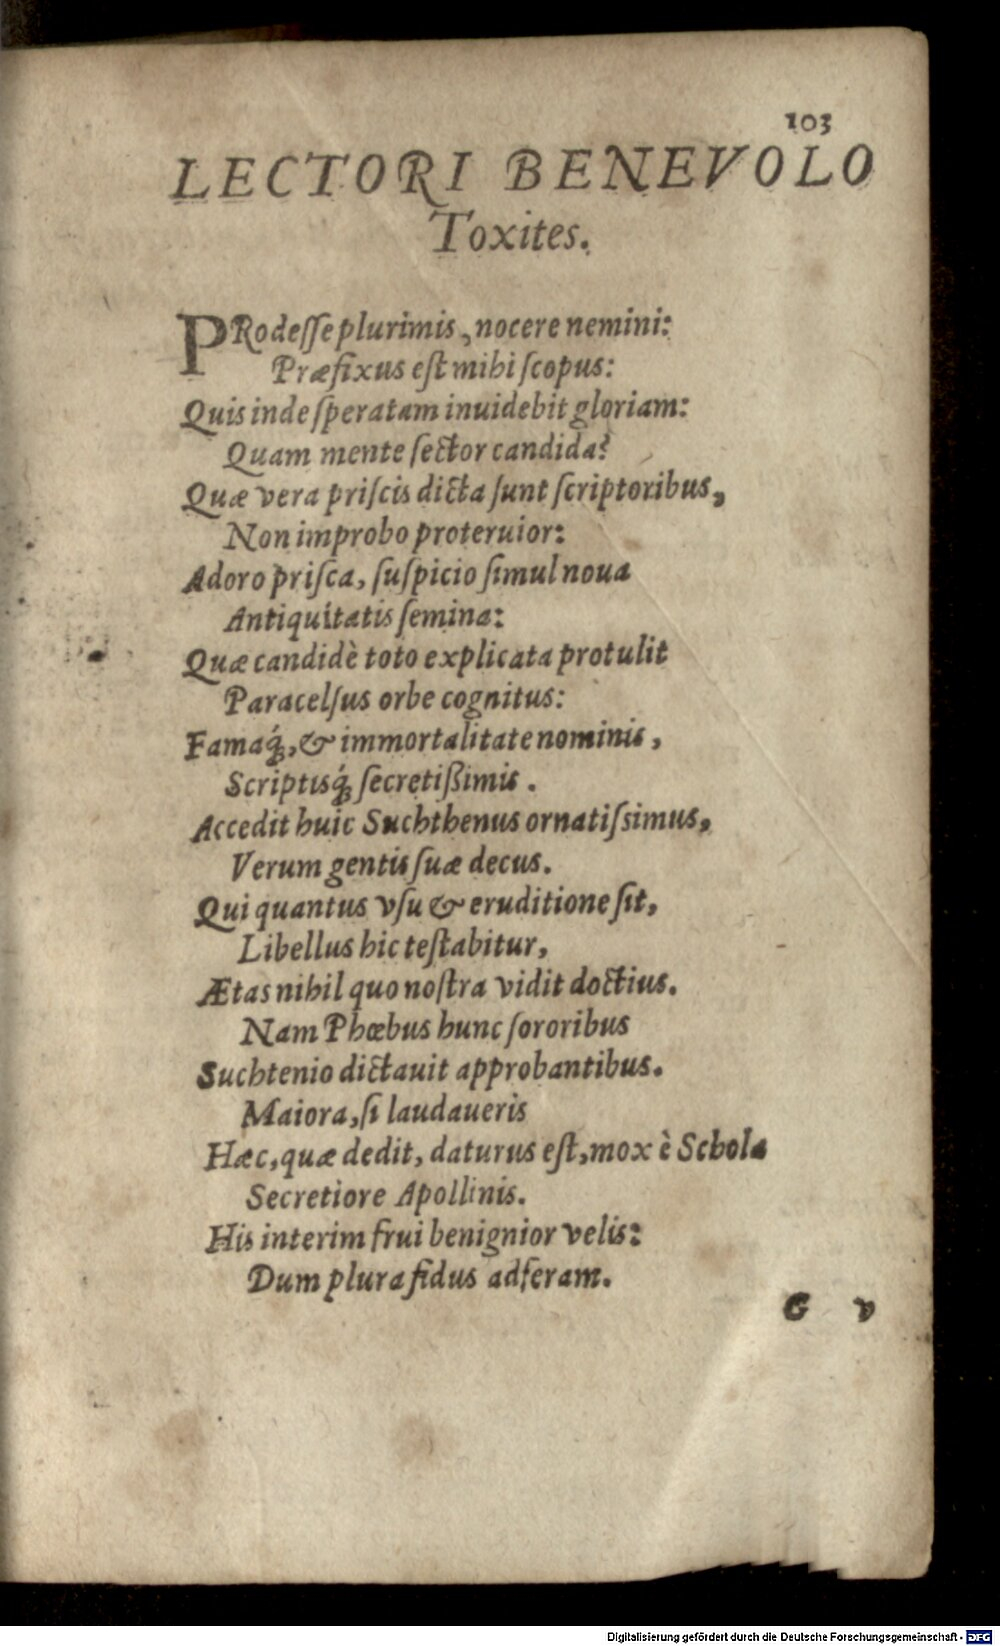 103
LECTORI BENEVOLO
Toxites.
PRodeſſe plurimis, nocere nemini:
Præfixus eſt mihi ſcopus:
Quis inde ſperatam inuidebit gloriam:
Quam mente ſector candida?
Quæ vera priſcis dicta ſunt ſcriptoribus,
Non improbo proteruior:
Adoro priſca, ſuſpicio ſimul noua
Antiquitatis ſemina:
Quæ candidè toto explicata protulit
Paracelſus orbe cognitus:
Famaq́;, & immortalitate nominis,
Scriptisq́; ſecretißimis.
Accedit huic Suchthenus ornatiſsimus,
Verum gentis ſuæ decus.
Qui quantus vſu & eruditione ſit,
Libellus hic teſtabitur,
Ætas nihil quo noſtra vidit doctius.
Nam Phœbus hunc ſororibus
Suchtenio dictauit approbantibus.
Maiora, ſi laudaueris
Hæc, quæ dedit, daturus eſt, mox è Schola
Secretiore Apollinis.
His interim frui benignior velis:
Dum plura fidus adferam.
G v
Digitalisierung gefördert durch die Deutsche Forschungsgemeinschaft - DFG